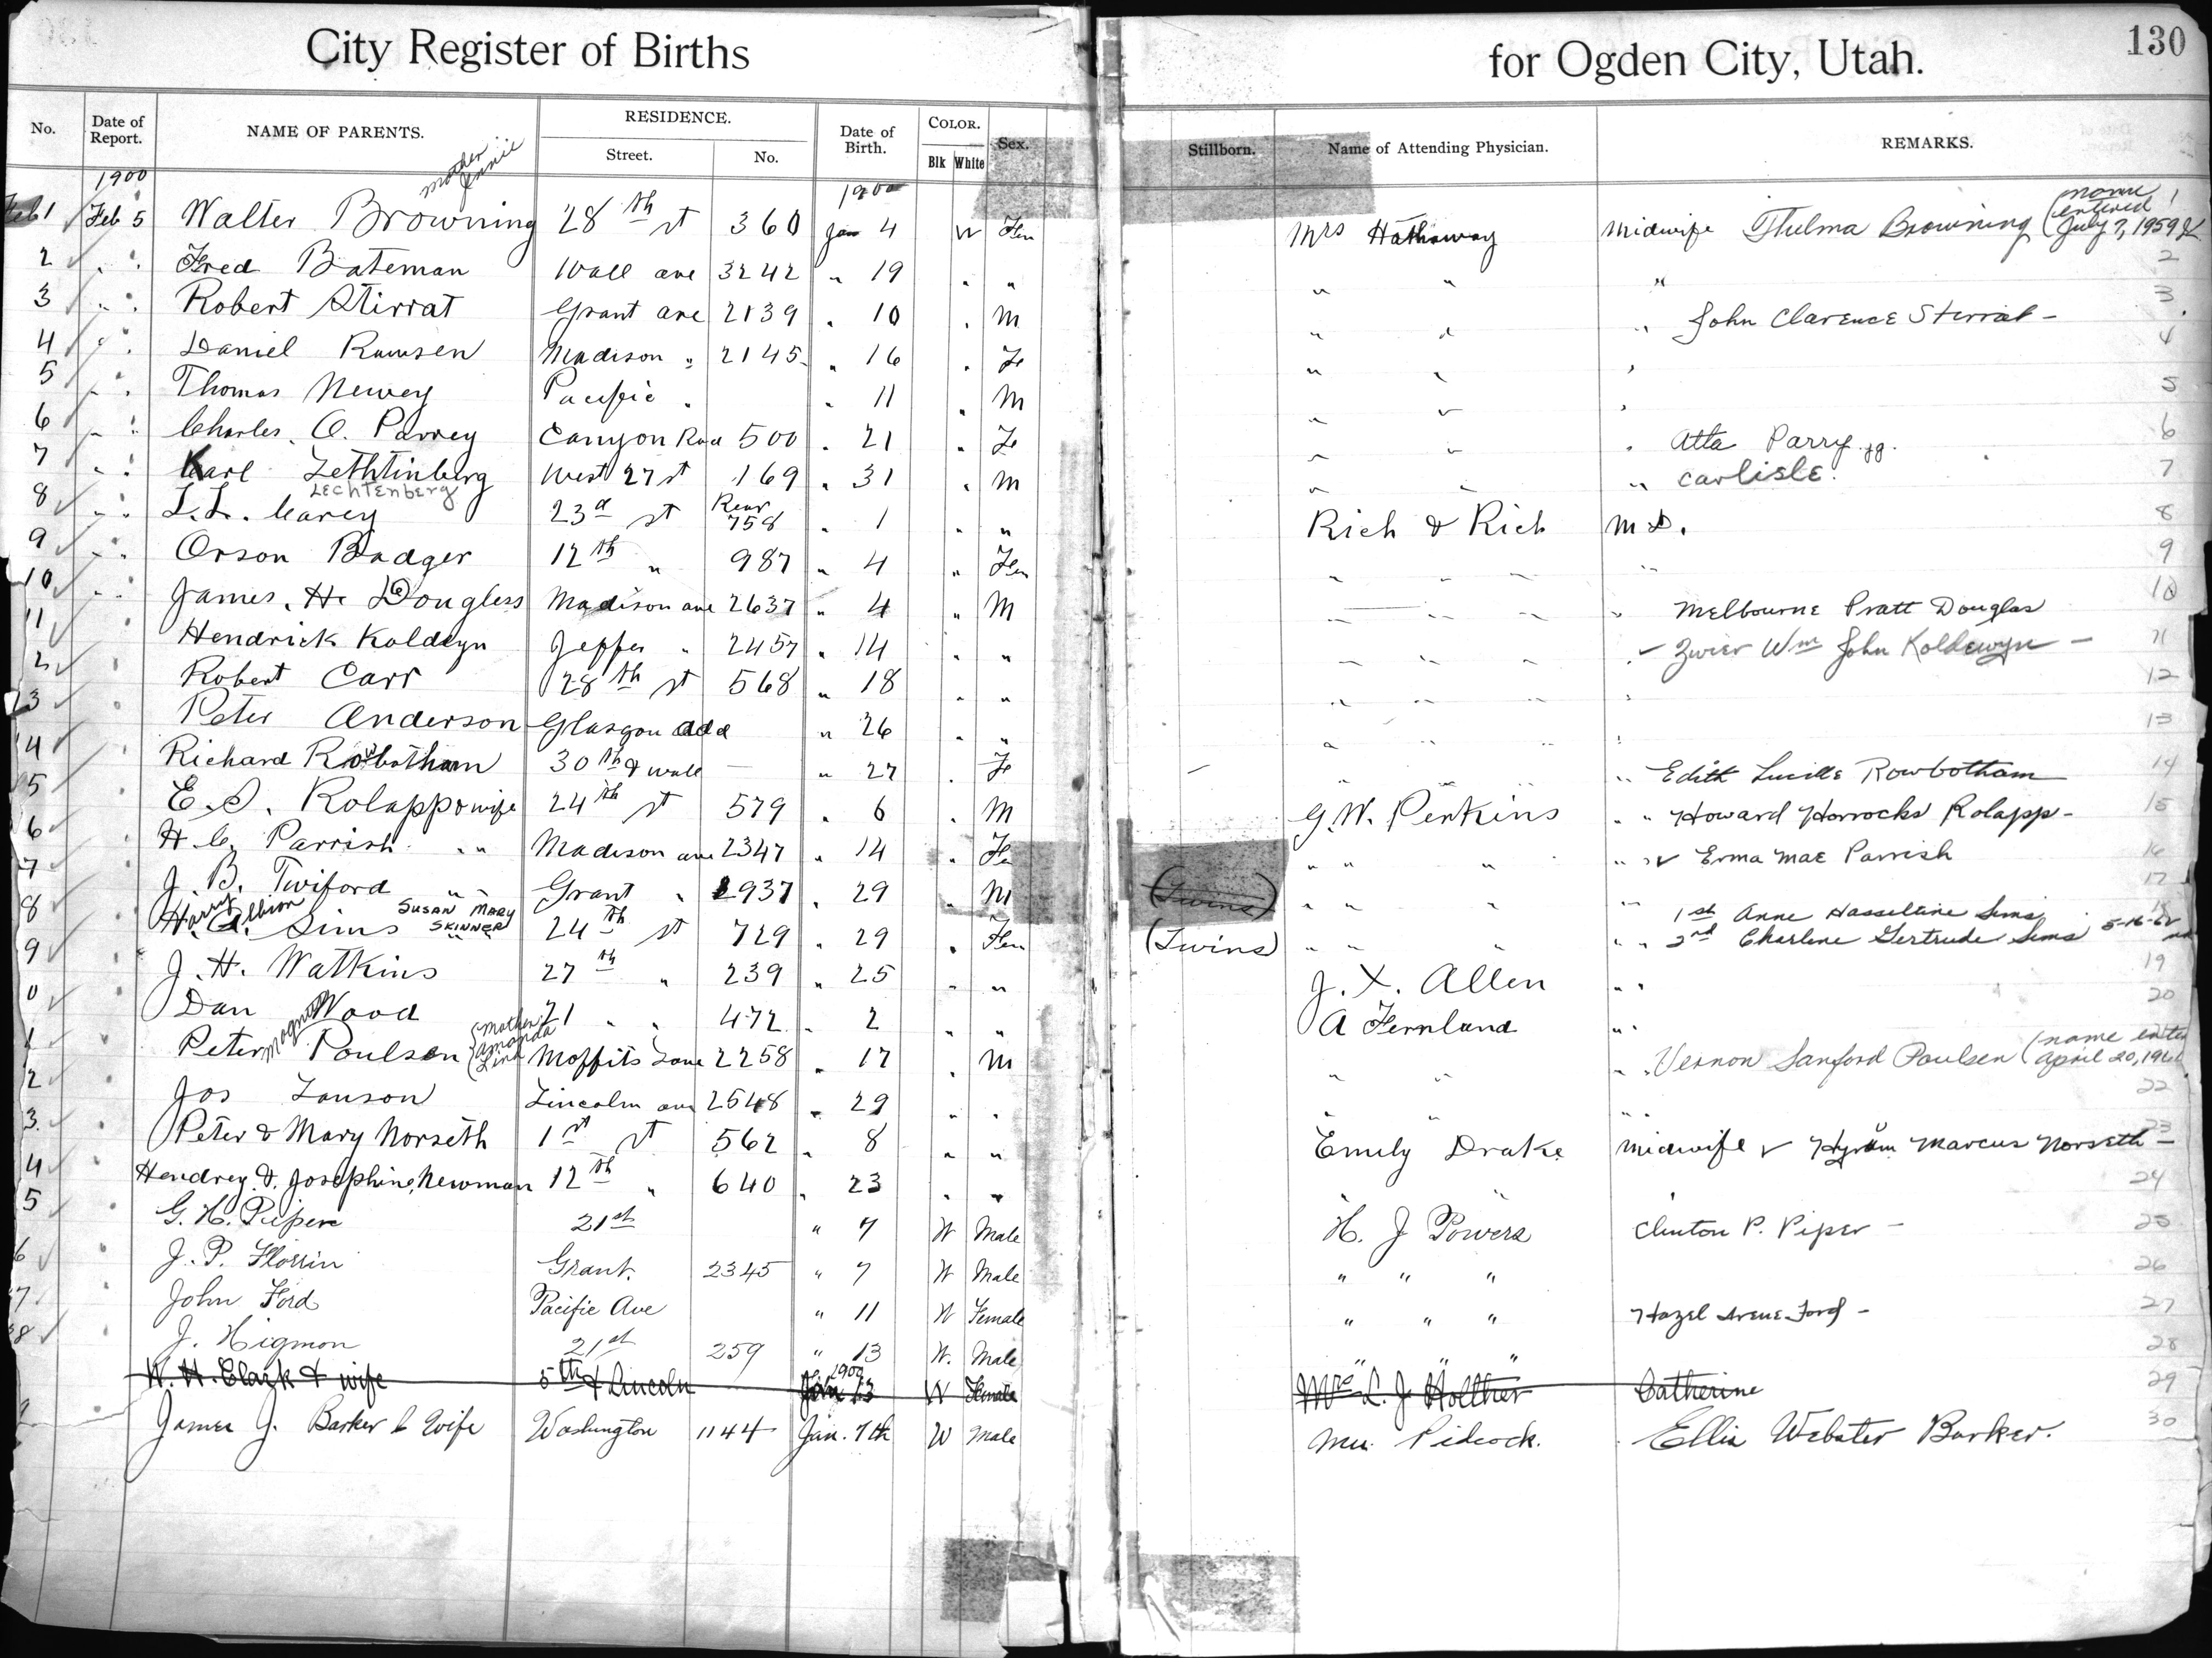 City Register of Births for Ogden City, Utah. 130
No. Date of Report. NAME OF PARENTS. RESIDENCE. Street. No. Date of Birth. COLOR. Blk White Sex. Stillborn. Name of Attending Physician. REMARKS.
1900 mother Jennie 1900 name entered
Feb 1 Feb 5 Walter Browning 28th st 360 Jan 4 W Fem Mrs Hathaway Midwife Thelma Browning July 7, 1959
2 " " Fred Bateman Wall ave 3242 " 19 " " " " " 2
3 " " Robert Stirrat Grant ave 2139 " 10 " M " " " John Clarence Stirrat - 3
4 " " Daniel Ramsen Madison " 2145 " 16 " Fe " " " 4
5 " " Thomas Newey Pacific " " 11 " M " " " 5
6 " " Charles O. Parrey Canyon Road 500 " 21 " Fe " " " Atta Parry 6
7 " " Karl Lethtinberg West 27 st 169 " 31 " M " " " Carlisle. 7
Lechtenberg
8 " " L. L. Carey 23d st Rear 758 " 1 " " Rich & Rich M D. 8
9 " " Orson Badger 12th " 987 " 4 " Fem " " " " 9
10 " " James. H. Douglass Madison ave 2637 " 4 " M " " " Melbourne Pratt Douglas 10
11 " Hendrick Koldeyn Jeffer " 2457 " 14 " " " " " " Zwier Wm John Koldewyn - 11
2 " Robert Carr 28th st 568 " 18 " " " " " " 12
13 " Peter Anderson Glasgow add " 26 " " " " " " 13
4 " Richard Rowbotham 30th & Wall — " 27 " Fe " " " " Edith Lucille Rowbotham 14
5 " E. S. Rolapp & wife 24th st 579 " 6 " M G. W. Perkins " " Howard Horrocks Rolapp - 15
6 " H. C. Parrish " " Madison ave 2347 " 14 " Fe " " " " Erma Mae Parrish 16
7 " J. B. Twiford " " Grant " 2937 " 29 " M (Twins) " " " " 17
8 " Harry Albion H. A. Sims Susan Mary Skinner 24th st 729 " 29 " Fem (Twins) " " " " " 1st Anne Hasseltine Sims
2nd Charlene Gertrude Sims 5-16-62
9 " J. H. Watkins 27th " 239 " 25 " " J. X. Allen " " 19
0 " Dan Wood 21 " " 472 " 2 " " A Fernlund " " 20
1 " Peter Magnus Poulsen (Mother Amanda Lind Moffits Lane 2258 " 17 " M " " " " Vernon Sanford Poulsen (name enter April 20, 196
2 " Jos Lauson Lincoln ave 2548 " 29 " " " " " " 22
3 " Peter & Mary Norseth 1st st 562 " 8 " " Emily Drake Midwife Hyrum Marcus Norseth - 23
4 " Hendrey & Josephine Newman 12th " 640 " 23 " " " " " 24
5 " G. H. Piper 21st " 7 W Male H. J Powers Clinton P. Piper - 25
6 " J. P. Florrin Grant. 2345 " 7 W Male " " " 26
7 " John Ford Pacific Ave " 11 W Female " " " Hazel Irene Ford - 27
28 J. Higmon 21st 259 " 13 W. Male " " " 28
W. H. Clark & wife 5th & Lincoln 1900 Jan 13 W Female Mrs L. J Holther Catherine 29
James J. Barker & Wife Washington 1144 Jan. 7th W Male Mrs. Pidcock. Ellis Webster Barker. 30